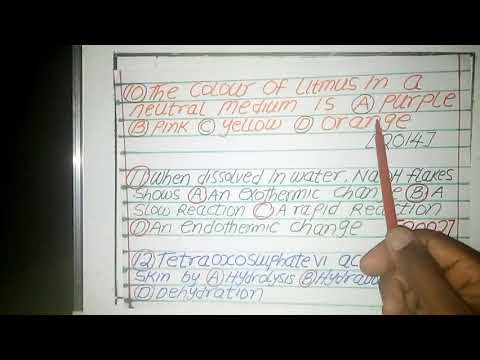 10) The Colour OF Litmus In a
neutral medium Is (A) Purple
(B) Pink (C) Yellow (D) Orange
[2014]
11) When dissolved In water, NaOH flakes
Shows (A) An Exothermic Change (B) A
Slow Reaction (C) A rapid Reaction
(D) An Endothermic change
12) Tetraoxosulphate VI
Skin by (A) Hydrolysis (B)
(D) Dehydration